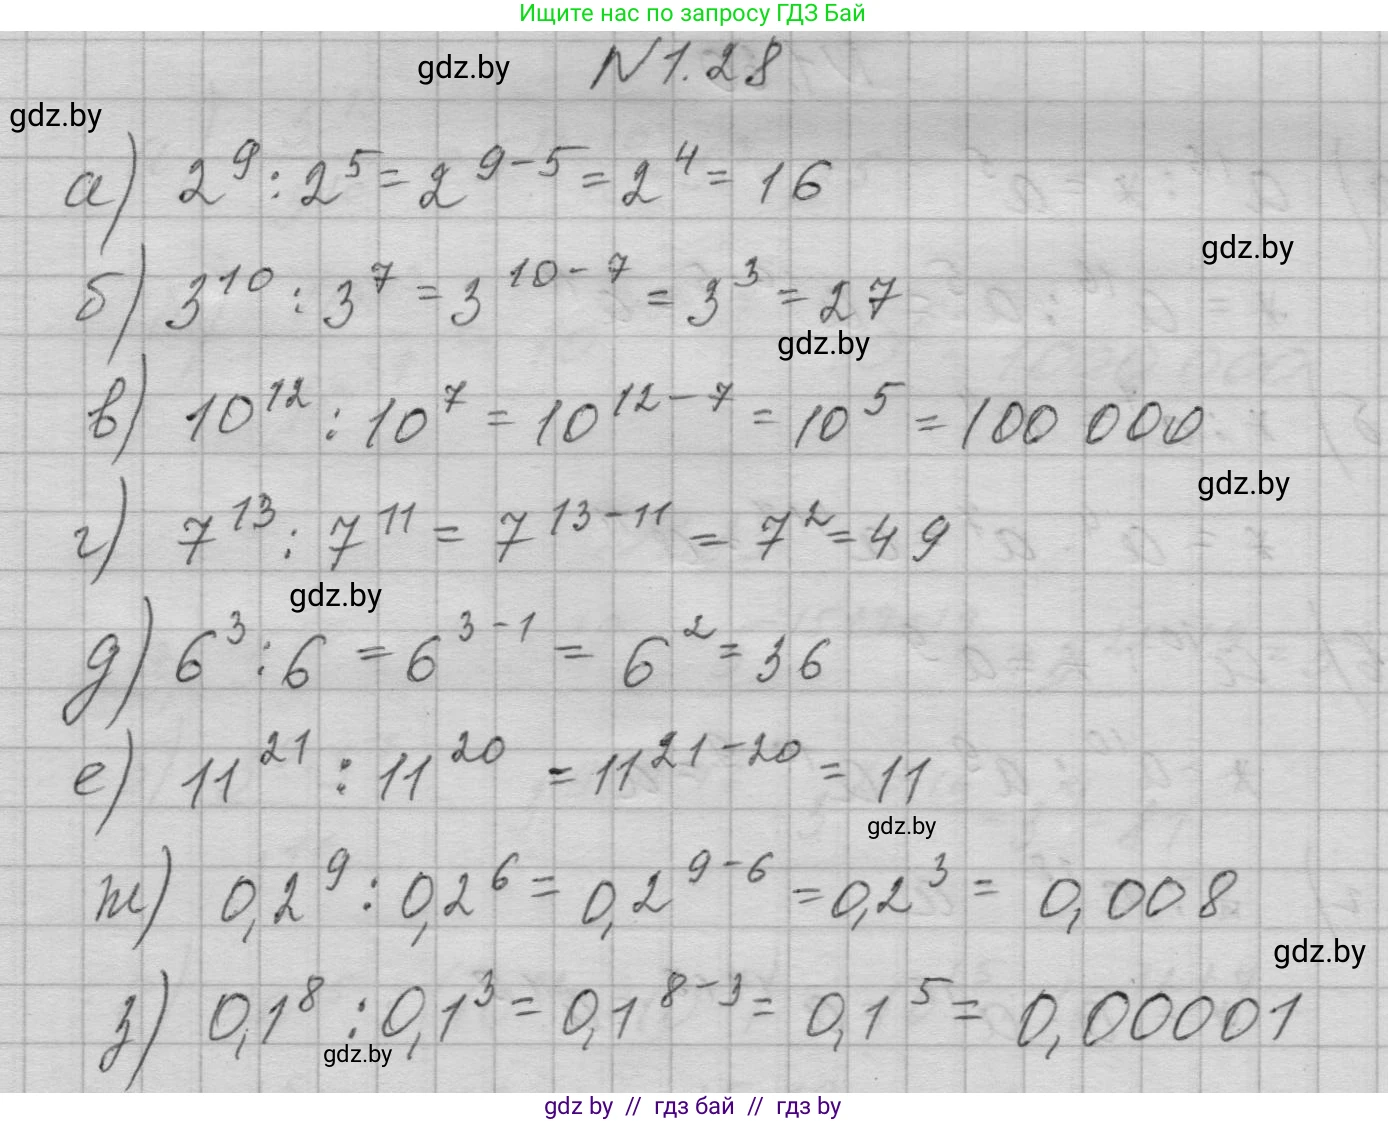 Ищите нас по запросу ГДЗ Бай
gdz.by
N 1.28
gdz.by
а) 2⁹ : 2⁵ = 2⁹⁻⁵ = 2⁴ = 16
gdz.by
б) 3¹⁰ : 3⁷ = 3¹⁰⁻⁷ = 3³ = 27
gdz.by
в) 10¹² : 10⁷ = 10¹²⁻⁷ = 10⁵ = 100 000
gdz.by
г) 7¹³ : 7¹¹ = 7¹³⁻¹¹ = 7² = 49
gdz.by
д) 6³ : 6 = 6³⁻¹ = 6² = 36
е) 11²¹ : 11²⁰ = 11²¹⁻²⁰ = 11
gdz.by
ж) 0,2⁹ : 0,2⁶ = 0,2⁹⁻⁶ = 0,2³ = 0,008
gdz.by
з) 0,1⁸ : 0,1³ = 0,1⁸⁻³ = 0,1⁵ = 0,00001
gdz.by
gdz by // гдз бай // гдз by